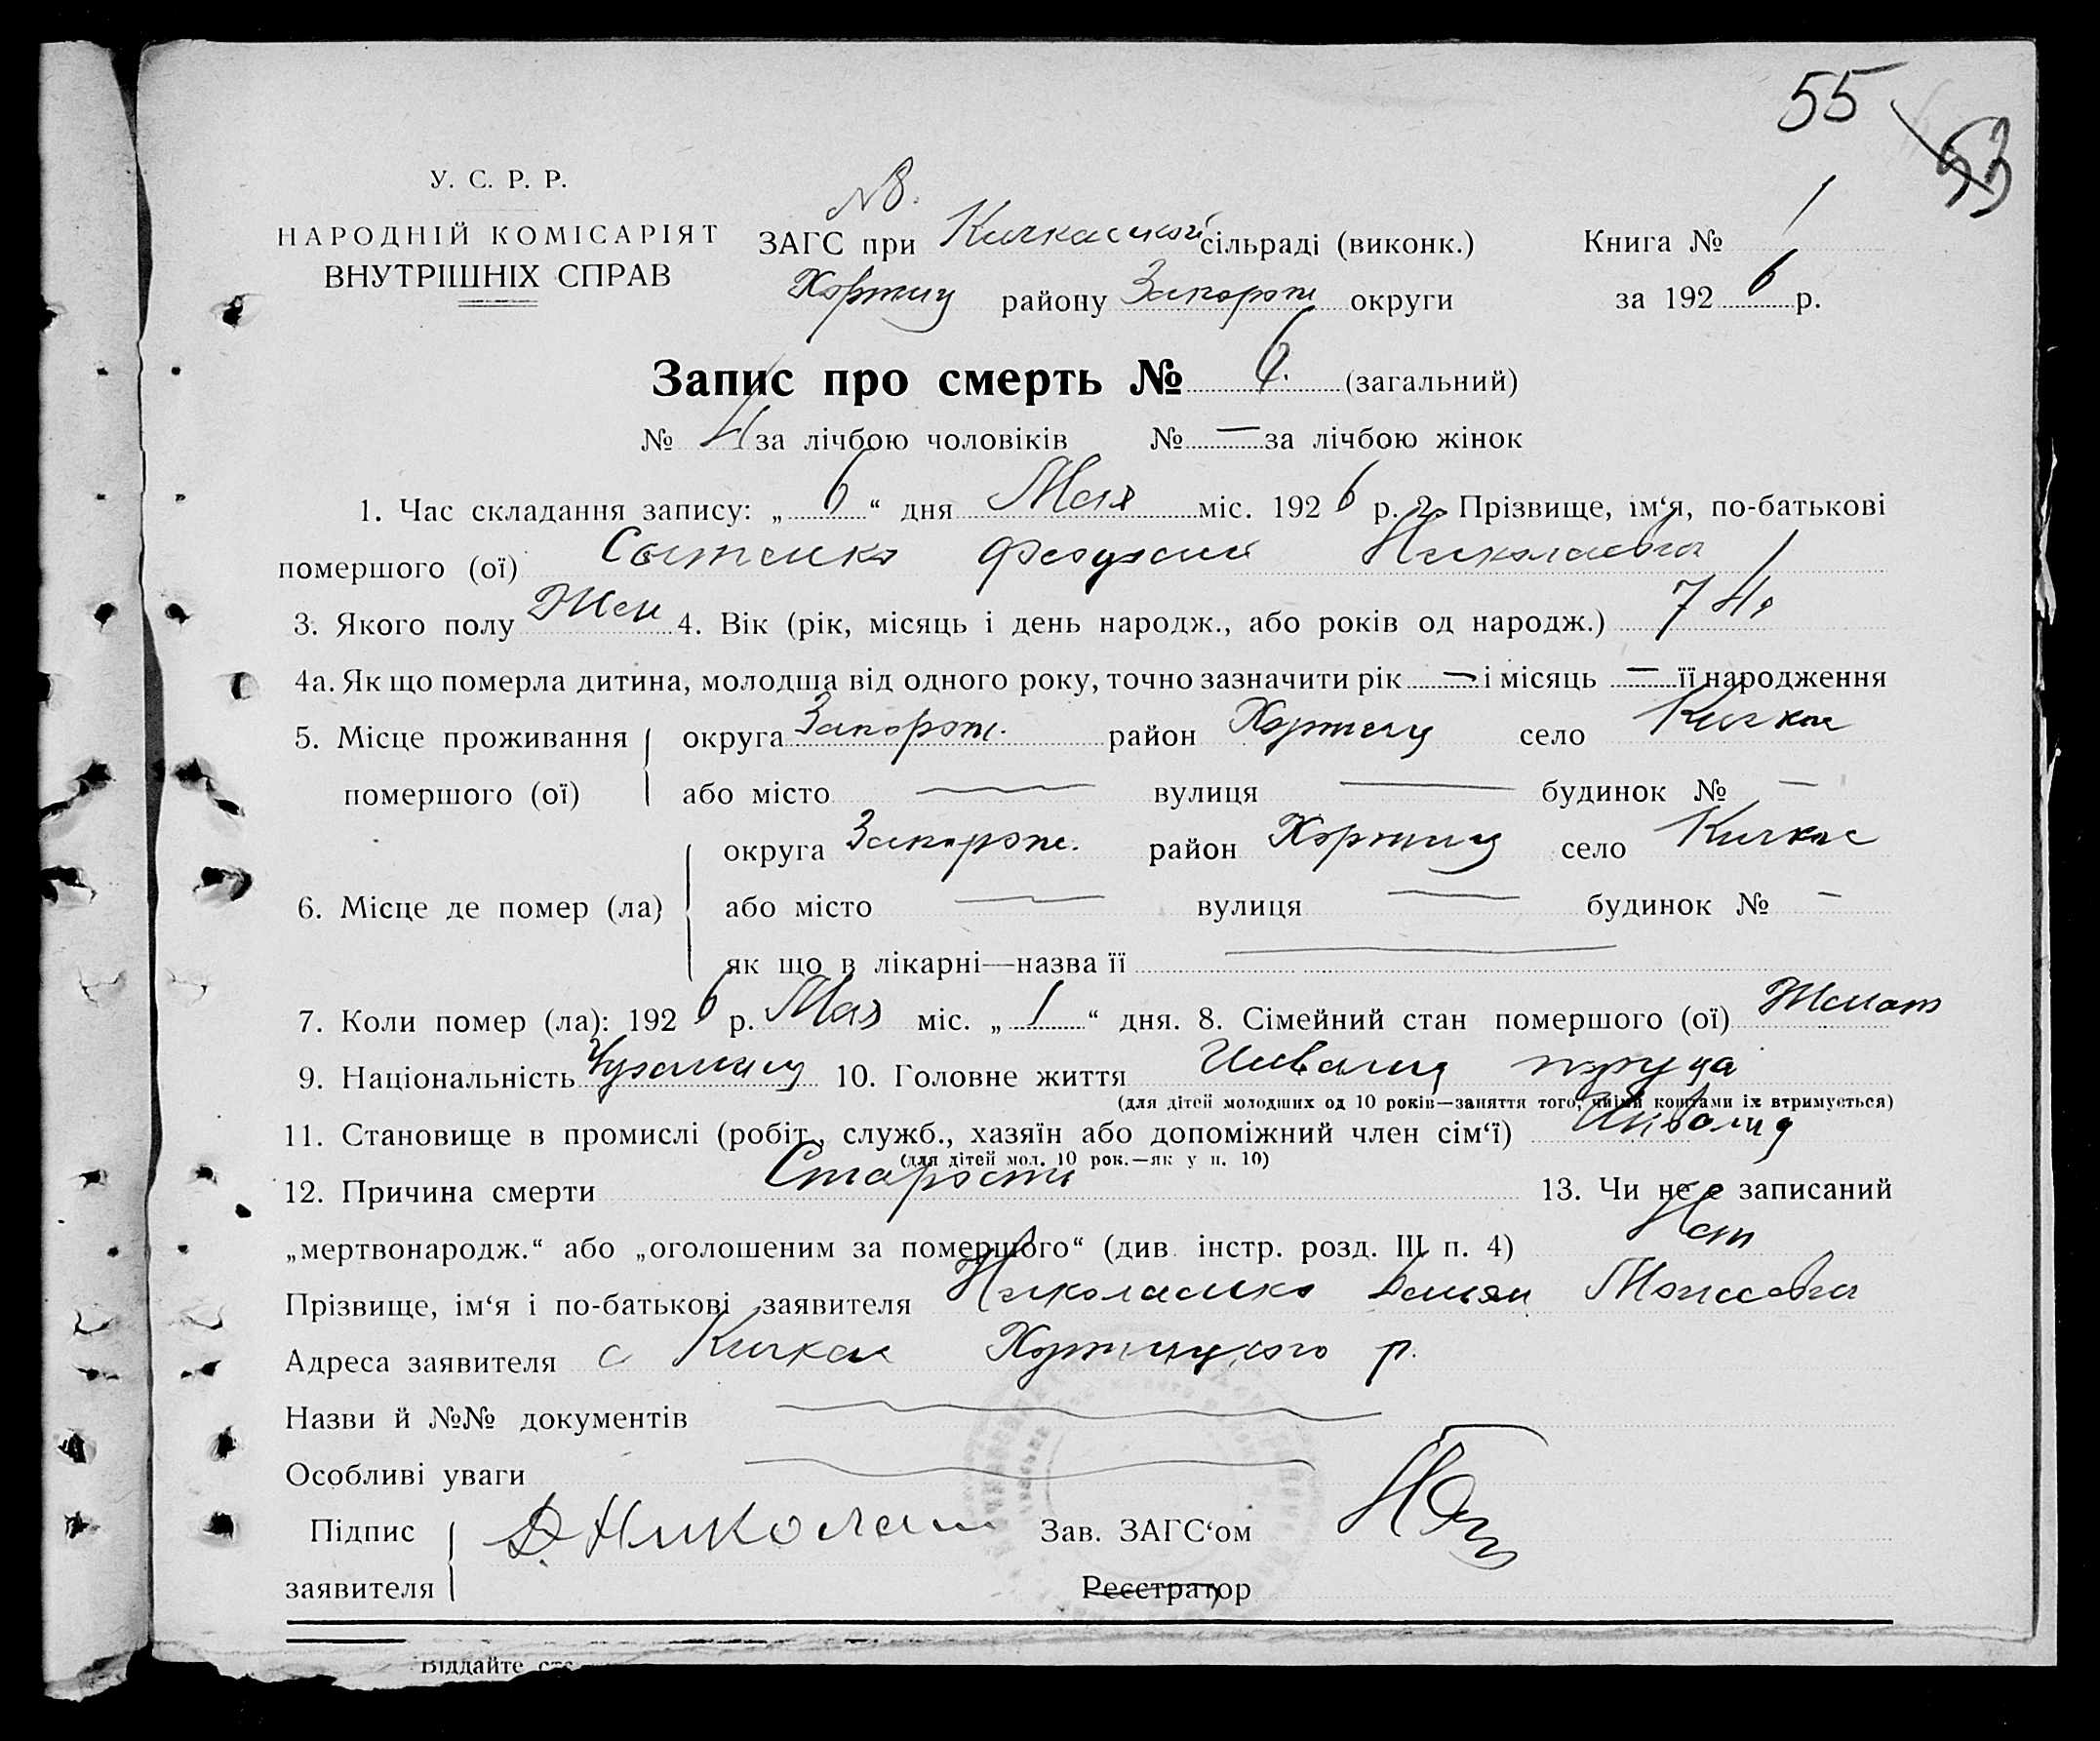 55
53
У. С. Р. Р.
НАРОДНІЙ КОМІСАРІЯТ
ВНУТРІШНІХ СПРАВ
N 8.
ЗАГС при Кичкаской сільраді (виконк.)
Хортиц району Запорож округи
Книга № 1
за 192 6 р.
Запис про смерть № 6. (загальний)
№ 4 за лічбою чоловіків № — за лічбою жінок
1. Час складання запису: „ 6 “ дня Мая міс. 192 6 р. 2. Прізвище, ім‘я, по-батькові
помершого (ої) Николаевич
3. Якого полу Жен 4. Вік (рік, місяць і день народж., або років од народж.) 74
4а. Як що померла дитина, молодша від одного року, точно зазначити рік — і місяць — її народження
5. Місце проживання округа Запорож. район Хортиц село Кичкас
помершого (ої) або місто — вулиця — будинок № —
округа Запорож. район Хортиц село Кичкас
6. Місце де помер (ла) або місто — вулиця — будинок № —
як що в лікарні—назва її —
7. Коли помер (ла): 192 6 р. Мая міс. „ 1 “ дня. 8. Сімейний стан помершого (ої) Женат
9. Національність 10. Головне життя Инвалид труда
(для дітей молодших од 10 років—заняття того, чиїми коштами їх втримується)
11. Становище в промислі (робіт., служб., хазяїн або допоміжний член сім‘ї) Инвалид
(для дітей мол. 10 рок.—як у п. 10)
12. Причина смерти Старость 13. Чи не є записаний
„мертвонародж.“ або „оголошеним за помершого“ (див. інстр. розд. III п. 4) Нет
Прізвище, ім‘я і по-батькові заявителя Николаенко Демьян
Адреса заявителя с Кичкас Хортицкого р.
Назви й №№ документів —
Особливі уваги —
Підпис заявителя Д. Николаен Зав. ЗАГС‘ом
Реєстратор
Віддайте